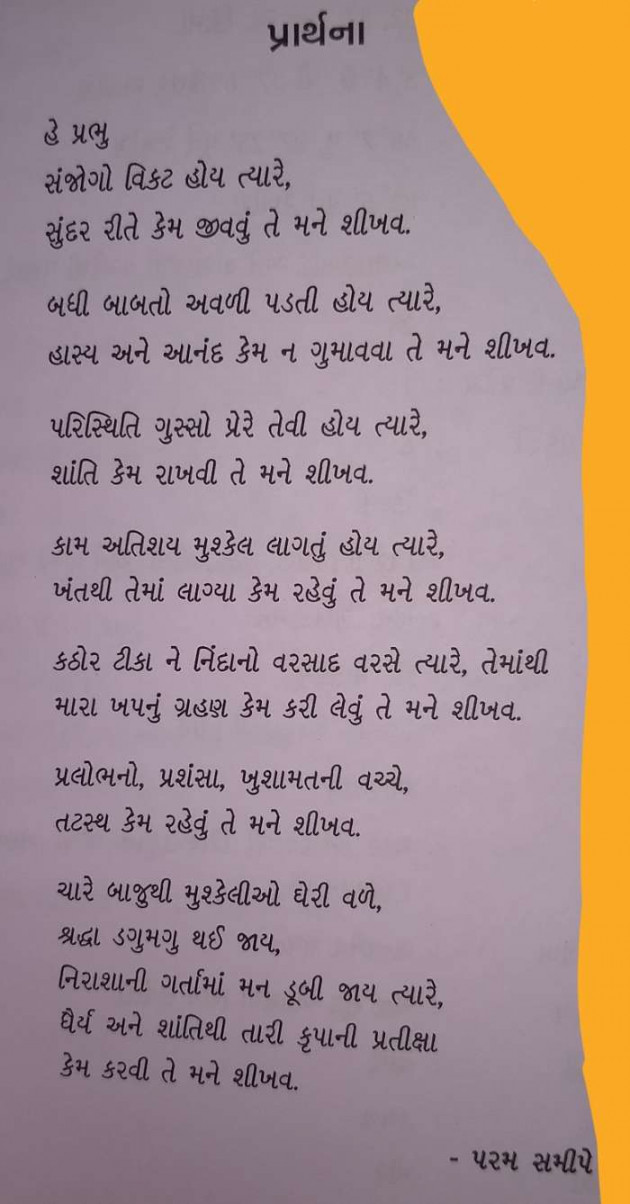 પ્રાર્થના
હે પ્રભુ
સંજોગો વિકટ હોય ત્યારે,
સુંદર રીતે કેમ જીવવું તે મને શીખવ.
બધી બાબતો અવળી પડતી હોય ત્યારે,
હાસ્ય અને આનંદ કેમ ન ગુમાવવા તે મને શીખવ.
પરિસ્થિતિ ગુસ્સો પ્રેરે તેવી હોય ત્યારે,
શાંતિ કેમ રાખવી તે મને શીખવ.
કામ અતિશય મુશ્કેલ લાગતું હોય ત્યારે,
ખંતથી તેમાં લાગ્યા કેમ રહેવું તે મને શીખવ.
કઠોર ટીકા ને નિંદાનો વરસાદ વરસે ત્યારે, તેમાંથી
મારા ખપનું ગ્રહણ કેમ કરી લેવું તે મને શીખવ.
પ્રલોભનો, પ્રશંસા, ખુશામતની વચ્ચે,
તટસ્થ કેમ રહેવું તે મને શીખવ.
ચારે બાજુથી મુશ્કેલીઓ ઘેરી વળે,
શ્રદ્ધા ડગુમગુ થઈ જાય,
નિરાશાની ગર્તામાં મન ડૂબી જાય ત્યારે,
ધૈર્ય અને શાંતિથી તારી કૃપાની પ્રતીક્ષા
કેમ કરવી તે મને શીખવ.
- પરમ સમીપે